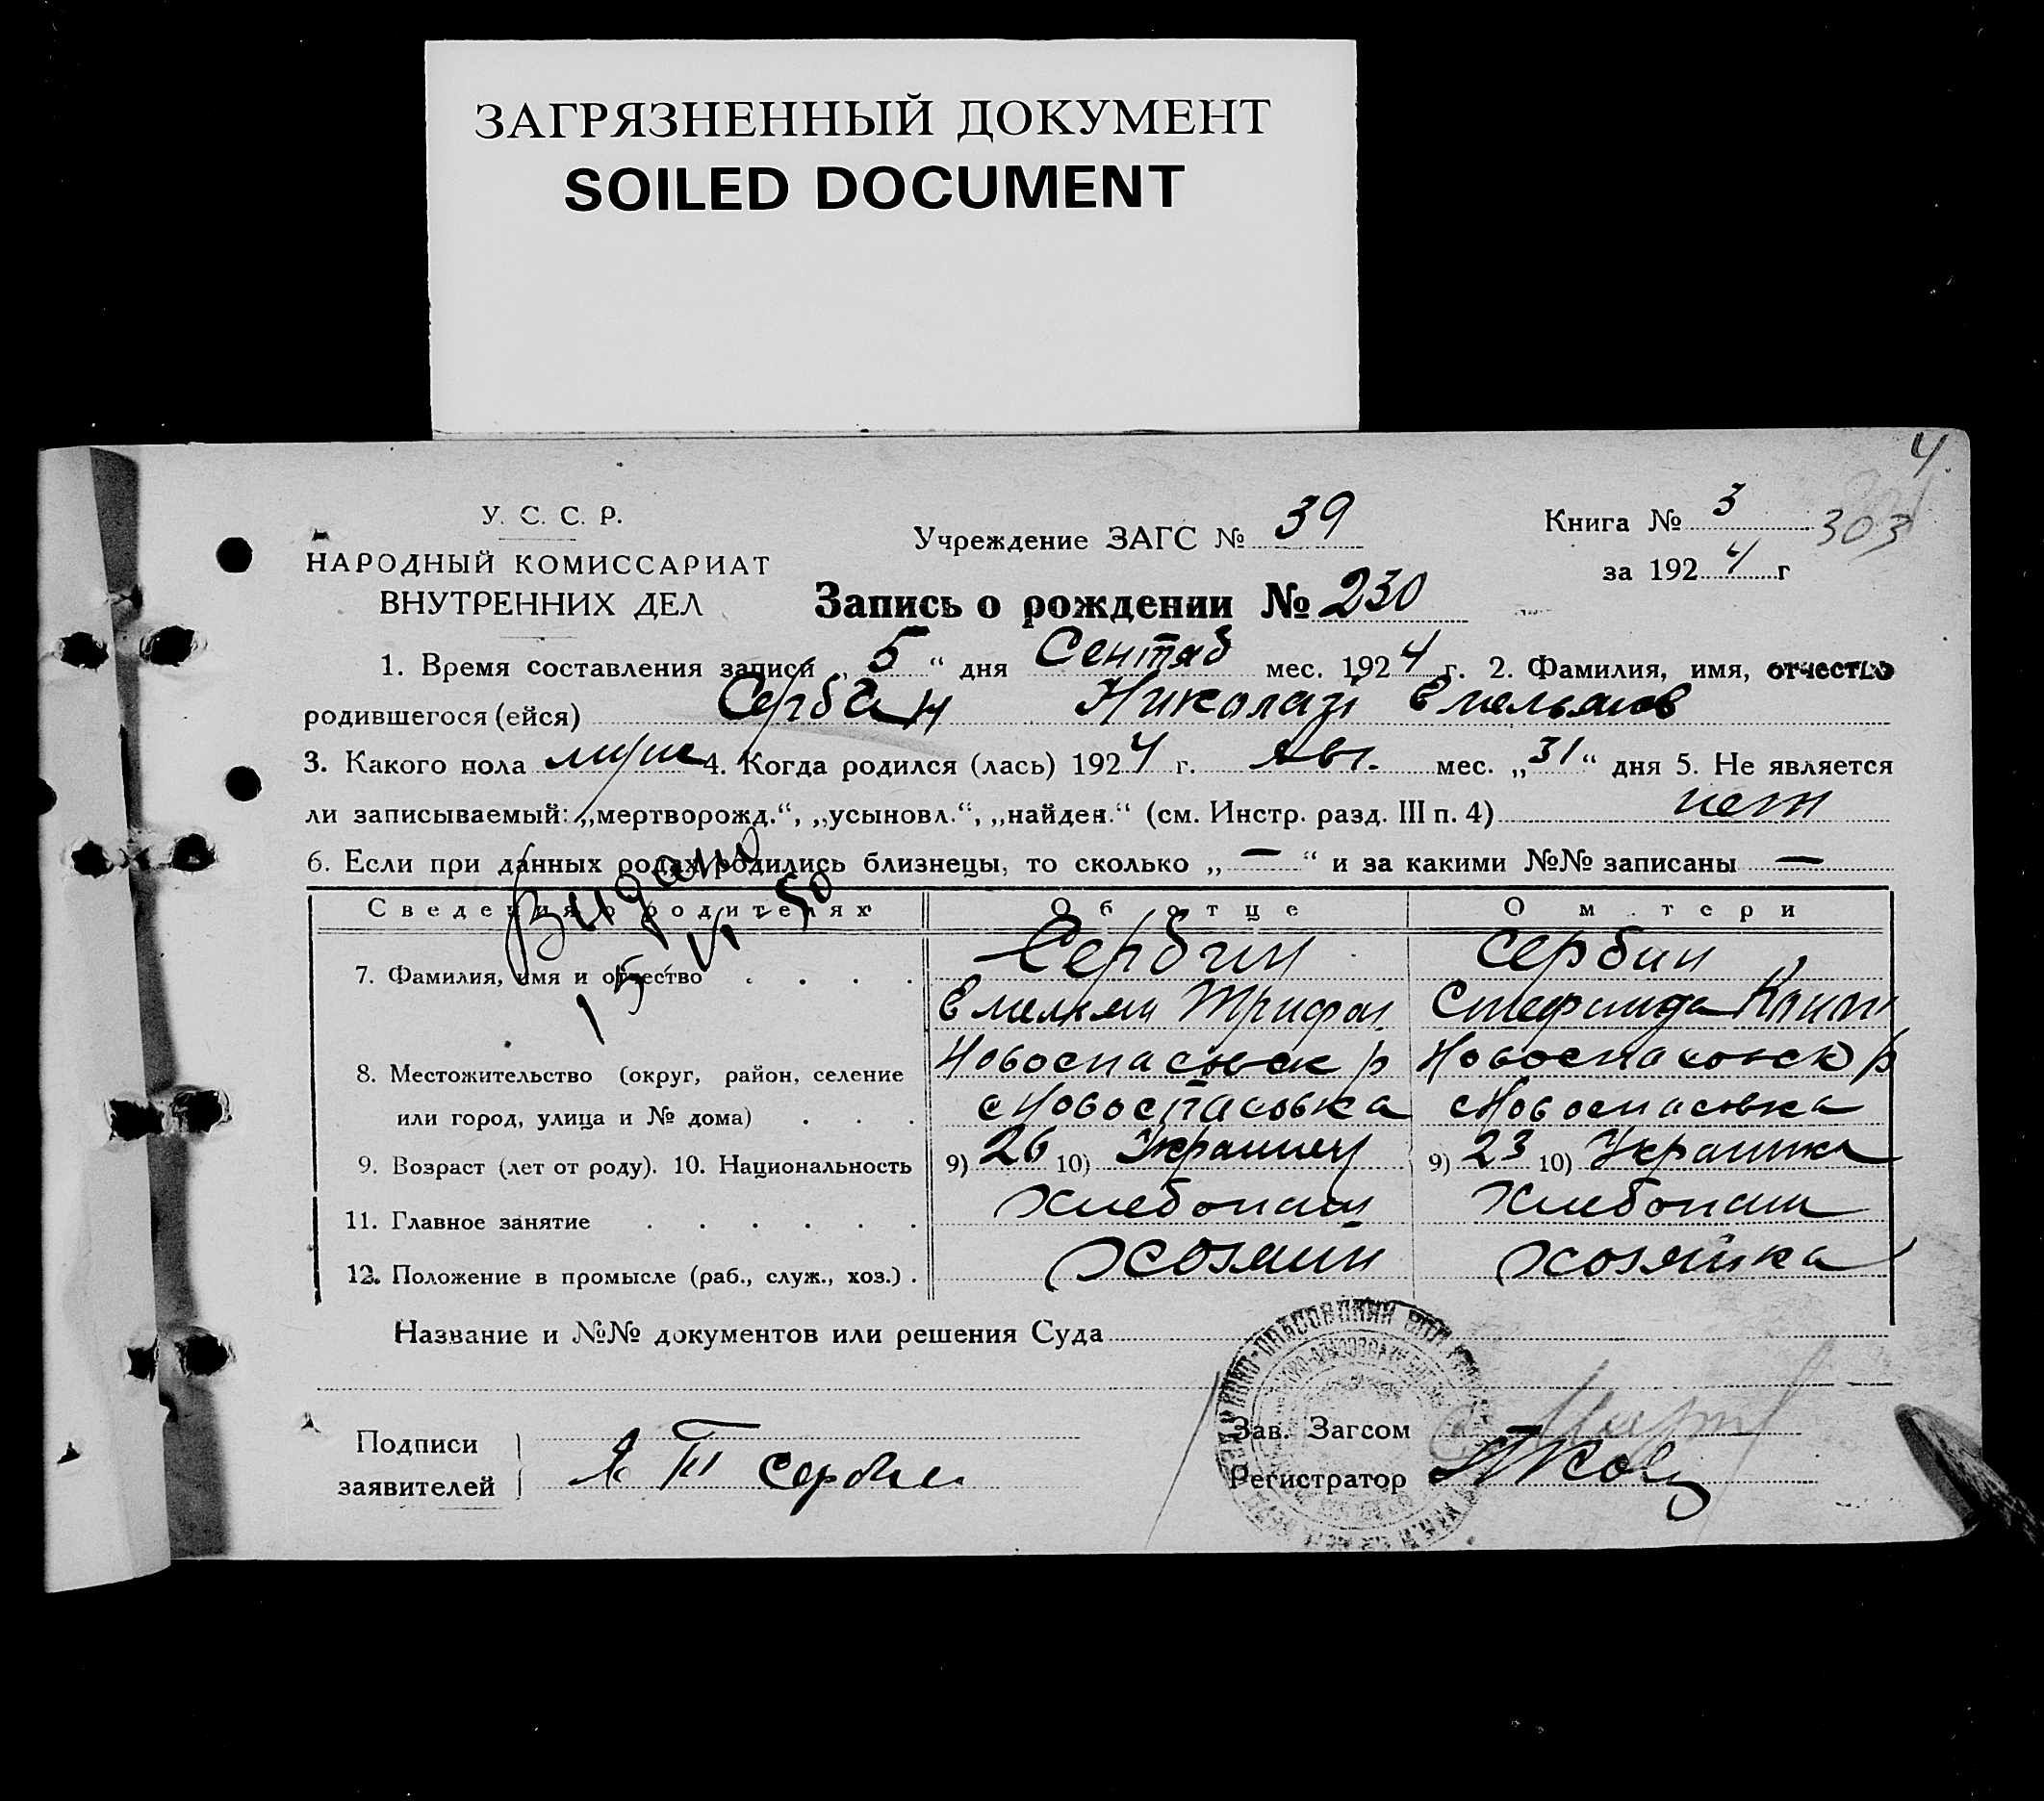 ЗАГРЯЗНЕННЫЙ ДОКУМЕНТ
SOILED DOCUMENT
4.
У. С. С. Р.
НАРОДНЫЙ КОМИССАРИАТ
ВНУТРЕННИХ ДЕЛ
Учреждение ЗАГС № 39
Книга № 3
303
за 1924 г
Запись о рождении № 230
1. Время составления записи „ 5 “ дня Сентяб мес. 1924 г. 2. Фамилия, имя, отчество
родившегося (ейся) Сербин Николай Емельянов
3. Какого пола муж 4. Когда родился (лась) 1924 г. Авг. мес. „31“ дня 5. Не является
ли записываемый: „мертворожд.“, „усыновл.“, „найден.“ (см. Инстр. разд. III п. 4) нет
6. Если при данных родах родились близнецы, то сколько „ — “ и за какими №№ записаны —
Видано
15 VI 50
Сведения о родителях Об отце О матери
7. Фамилия, имя и отчество . . . . Сербин Сербин
Емельян Трифон
8. Местожительство (округ, район, селение Новоспасовск р Новоспасовск р
или город, улица и № дома) . . . с Новоспасовка с Новоспасовка
9. Возраст (лет от роду). 10. Национальность 9) 26 10) Украинец 9) 23 10) Украинка
11. Главное занятие . . . . . . Хлебопаш Хлебопаш
12. Положение в промысле (раб., служ., хоз.) . Хозяин Хозяйка
Название и №№ документов или решения Суда
Подписи
заявителей
Сербин
Зав. Загсом
Регистратор